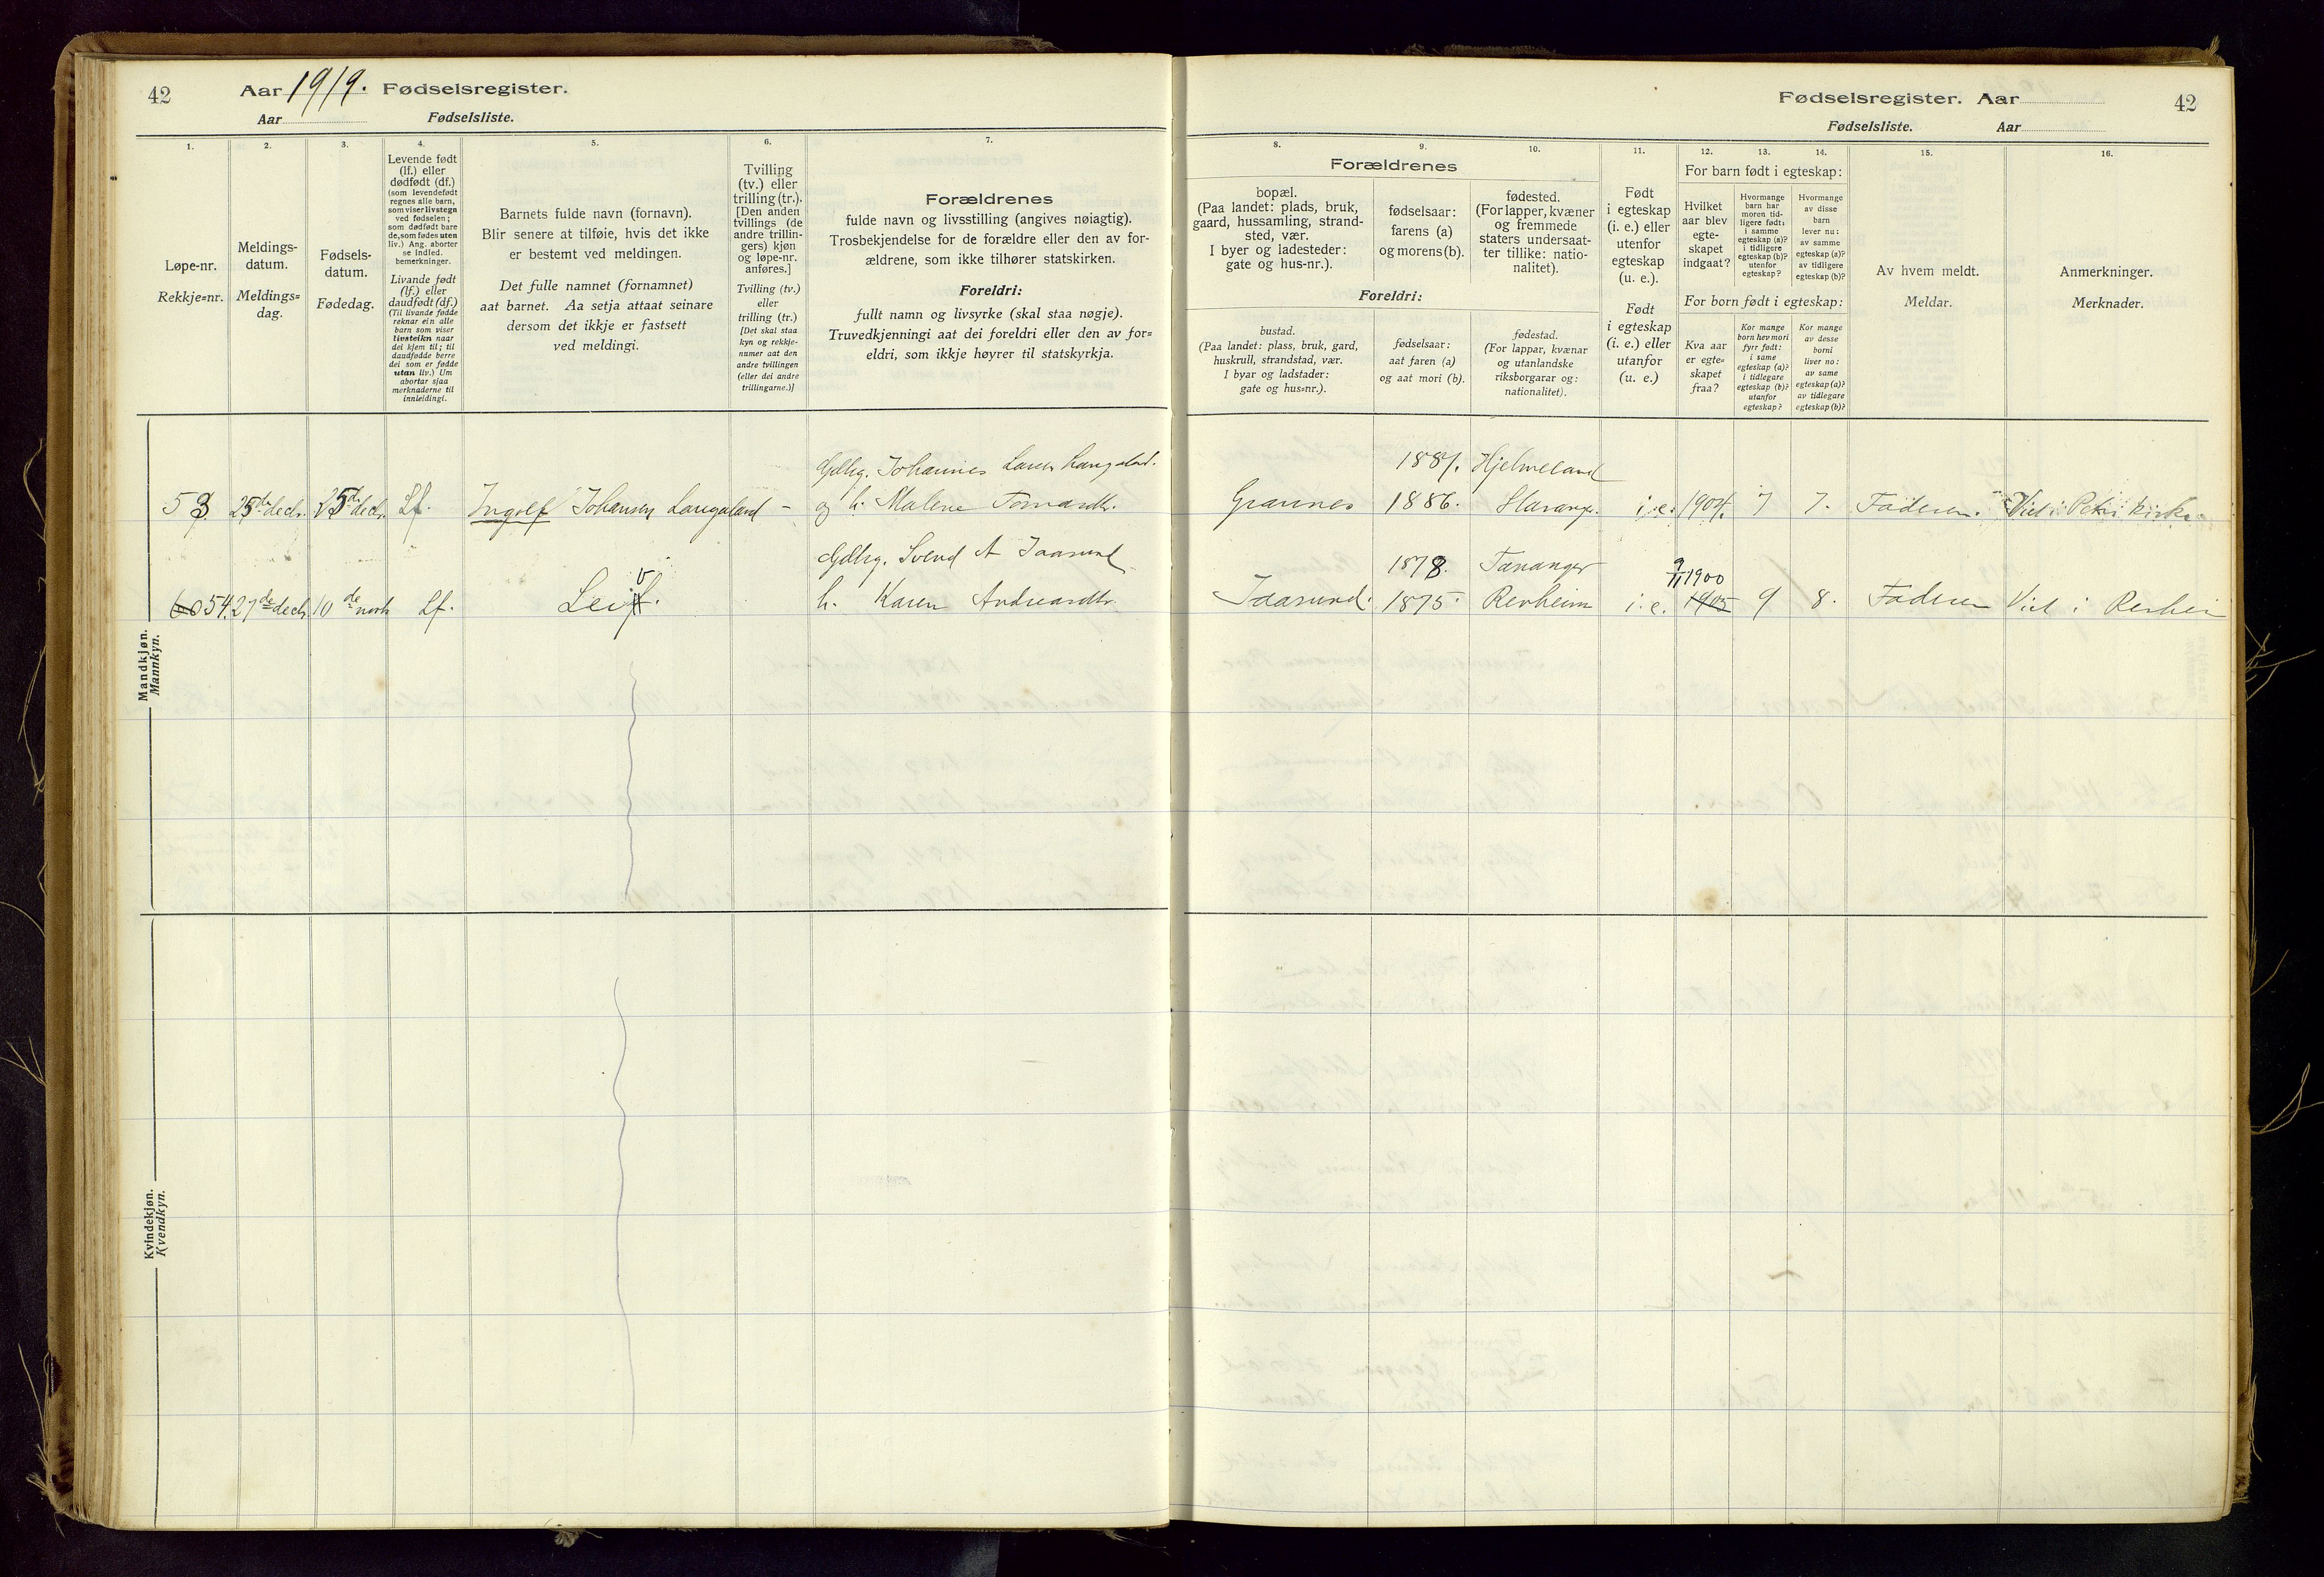 42
Aar 1919. Fødselsregister.
Aar Fødselsliste.
1.
2.
3.
4.
5.
6.
7.
Løpe-nr.
Rekkje=nr.
Meldings-
datum.
Meldings=
dag.
Fødsels-
datum.
Fødedag.
Levende født
(lf.) eller
dødfødt (df.)
(som levendefødt
regnes alle barn,
som viser livstegn
ved fødselen;
som dødfødt bare
de, som fødes uten
liv.) Ang. aborter
se indled.
bemerkninger.
Livande født
(lf.) eller
daudfødt (df.)
(Til livande fødde
reknar ein alle
barn som viser
livsteikn naar
dei kjem til; til
daudfødde berre
dei som er fødde
utan liv.) Um
abortar sjaa
merknaderne til
innleidingi.
Barnets fulde navn (fornavn).
Blir senere at tilføie, hvis det ikke
er bestemt ved meldingen.
Det fulle namnet (fornamnet)
aat barnet. Aa setja attaat seinare
dersom det ikkje er fastsett
ved meldingi.
Tvilling
(tv.) eller
trilling (tr.).
[Den anden
tvillings (de
andre trillin-
gers) kjøn
og løpe-nr.
anføres.]
Tvilling (tv.)
eller
trilling (tr.)
[Det skal staa
kyn og rekkje-
numer aat den
andre tvillingen
(eller dei andre
trillingarne.)]
Forældrenes
fulde navn og livsstilling (angives nøiagtig).
Trosbekjendelse for de forældre eller den av for-
ældrene, som ikke tilhører statskirken.
Foreldri:
fullt namn og livsyrke (skal staa nøgje).
Truvedkjenningi aat dei foreldri eller den av for=
eldri, som ikkje høyrer til statskyrkja.
Mandkjøn.
Mannkyn.
Gdbrg. Johannes Larsen Langeland.
53. 25de decbr. 25de decbr. Lf. Ingolf Johansen Langeland - og h. Malene Tomasdtr.
Gdbrg. Svend A Jaasund
60 54. 27de decbr. 10de novb Lf. Leif. v h. Karen Andreasdtr.
Kvindekjøn.
Kvendkyn.
Fødselsregister. Aar
42
Fødselsliste. Aar
8.
9.
10.
11.
12.
13.
14.
15.
16.
Forældrenes
bopæl.
(Paa landet: plads, bruk,
gaard, hussamling, strand-
sted, vær.
I byer og ladesteder:
gate og hus-nr.).
fødselsaar:
farens (a)
og morens (b).
fødested.
(For lapper, kvæner
og fremmede
staters undersaat-
ter tillike: natio-
nalitet).
Foreldri:
bustad.
(Paa landet: plass, bruk, gard,
huskrull, strandstad, vær.
I byar og ladstader:
gate og hus=nr.).
fødselsaar:
aat faren (a)
og aat mori (b).
fødestad.
(For lappar, kvænar
og utanlandske
riksborgarar og:
nationalitet).
Født
i egteskap
(i. e.) eller
utenfor
egteskap
(u. e.).
Født
i egteskap
(i. e.) eller
utanfor
(u. e.)
For barn født i egteskap:
Hvilket
aar blev
egte-
skapet
indgaat?
Hvormange
barn har
moren tid-
ligere født:
i samme
egteskap (a)?
i tidligere
egteskap (b)?
utenfor
egteskap?
Hvormange
av disse
barn
lever nu:
av samme
egteskap (a)?
av tidligere
egteskap (b)?
For born født i egteskap:
Kva aar
er egte=
skapet
fraa?
Kor mange
born hev mori
fyrr født:
i same
egteskap (a)?
i tidlegare
egteskap (b)?
utanfor
egteskap?
Kor mange
av desse
borni
liver no:
av same
egteskap (a)?
av tidlegare
egteskap (b)?
Av hvem meldt.
Meldar.
Anmerkninger.
Merknader.
1881. Hjelmeland
Grannes 1886. Stavanger. i.e. 1904. 7 7. Faderen. Viet i Petri kirke
1878. Tananger 9/11 1900
Jaasund. 1875. Revheim i. e. 1905 9 8. Faderen Viet i Revheim